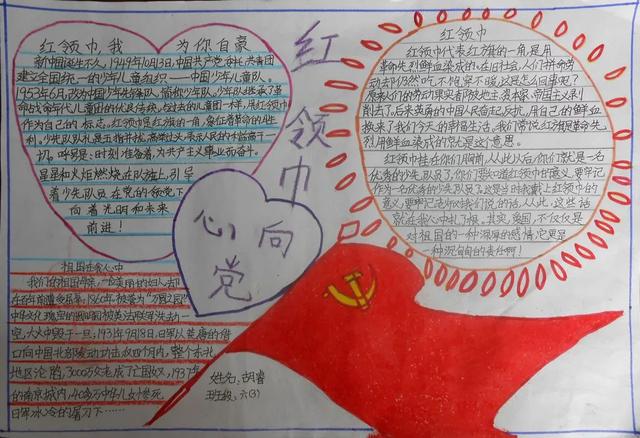 红领巾我为你自豪
新中国诞生不久,1949年10月13日,中国共产党委托共青团
建立全国统一的少年儿童组织——中国少年儿童队。
1953年6月,改为中国少年先锋队,简称少年队。少年队继承了革
命战争年代儿童团的优良传统。与过去的儿童团一样,用红领巾
作为自己的标志。红领巾是红旗的一角,象征着革命的胜
利。少先队队礼是五指并拢,高举过头,表示人民的利益高于一
切。呼号是:时刻准备着,为共产主义事业而奋斗。
星星和火炬燃烧在队旗上,引导
着少先队员在党的领导下
向着光明和未来
前进!
红领巾
心向党
红领巾
红领巾代表红旗的一角,是用
革命先烈鲜血染成的。在旧社会,人们拼命劳
动去仍然吃不饱穿不暖,这是怎么回事呢?
原来人们的劳动果实都被地主、资本家、帝国主义剥
削去了。后来英勇的中国人奋起反抗,用自己的鲜血
换来了我们今天的幸福生活。我们常说红旗是革命先
烈用鲜血染成的就是这个意思。
红领巾挂在你们胸前,从此以后,你们就是一名
优秀的少先队员了,你们要知道红领巾的意义,要牢记
作为一名优秀的少先队员了,这是当时我戴上红领巾的
意义,要牢记老师对我们说的话,从此,这些话
就在我心中扎了根。其实,爱国,不仅仅是
对祖国的一种深厚的感情,它更是
一种沉甸甸的责任啊!
祖国在我心中
我们的祖国母亲,一位美丽的妇人,却
在百年前遭受屈辱,1860年,被誉为“万园之园”
中华文化瑰宝的圆明园被英法联军洗劫一
空,大火中毁于一旦;1931年9月18日,日军以莫须的借
口向中国北部发动攻击,仅四个月内,整个东北
地区沦陷,3000万众老成了亡国奴,1937年
的南京城内,40多万中华儿女惨死
日军冰冷的屠刀下……
姓名:胡睿
班级:六(3)